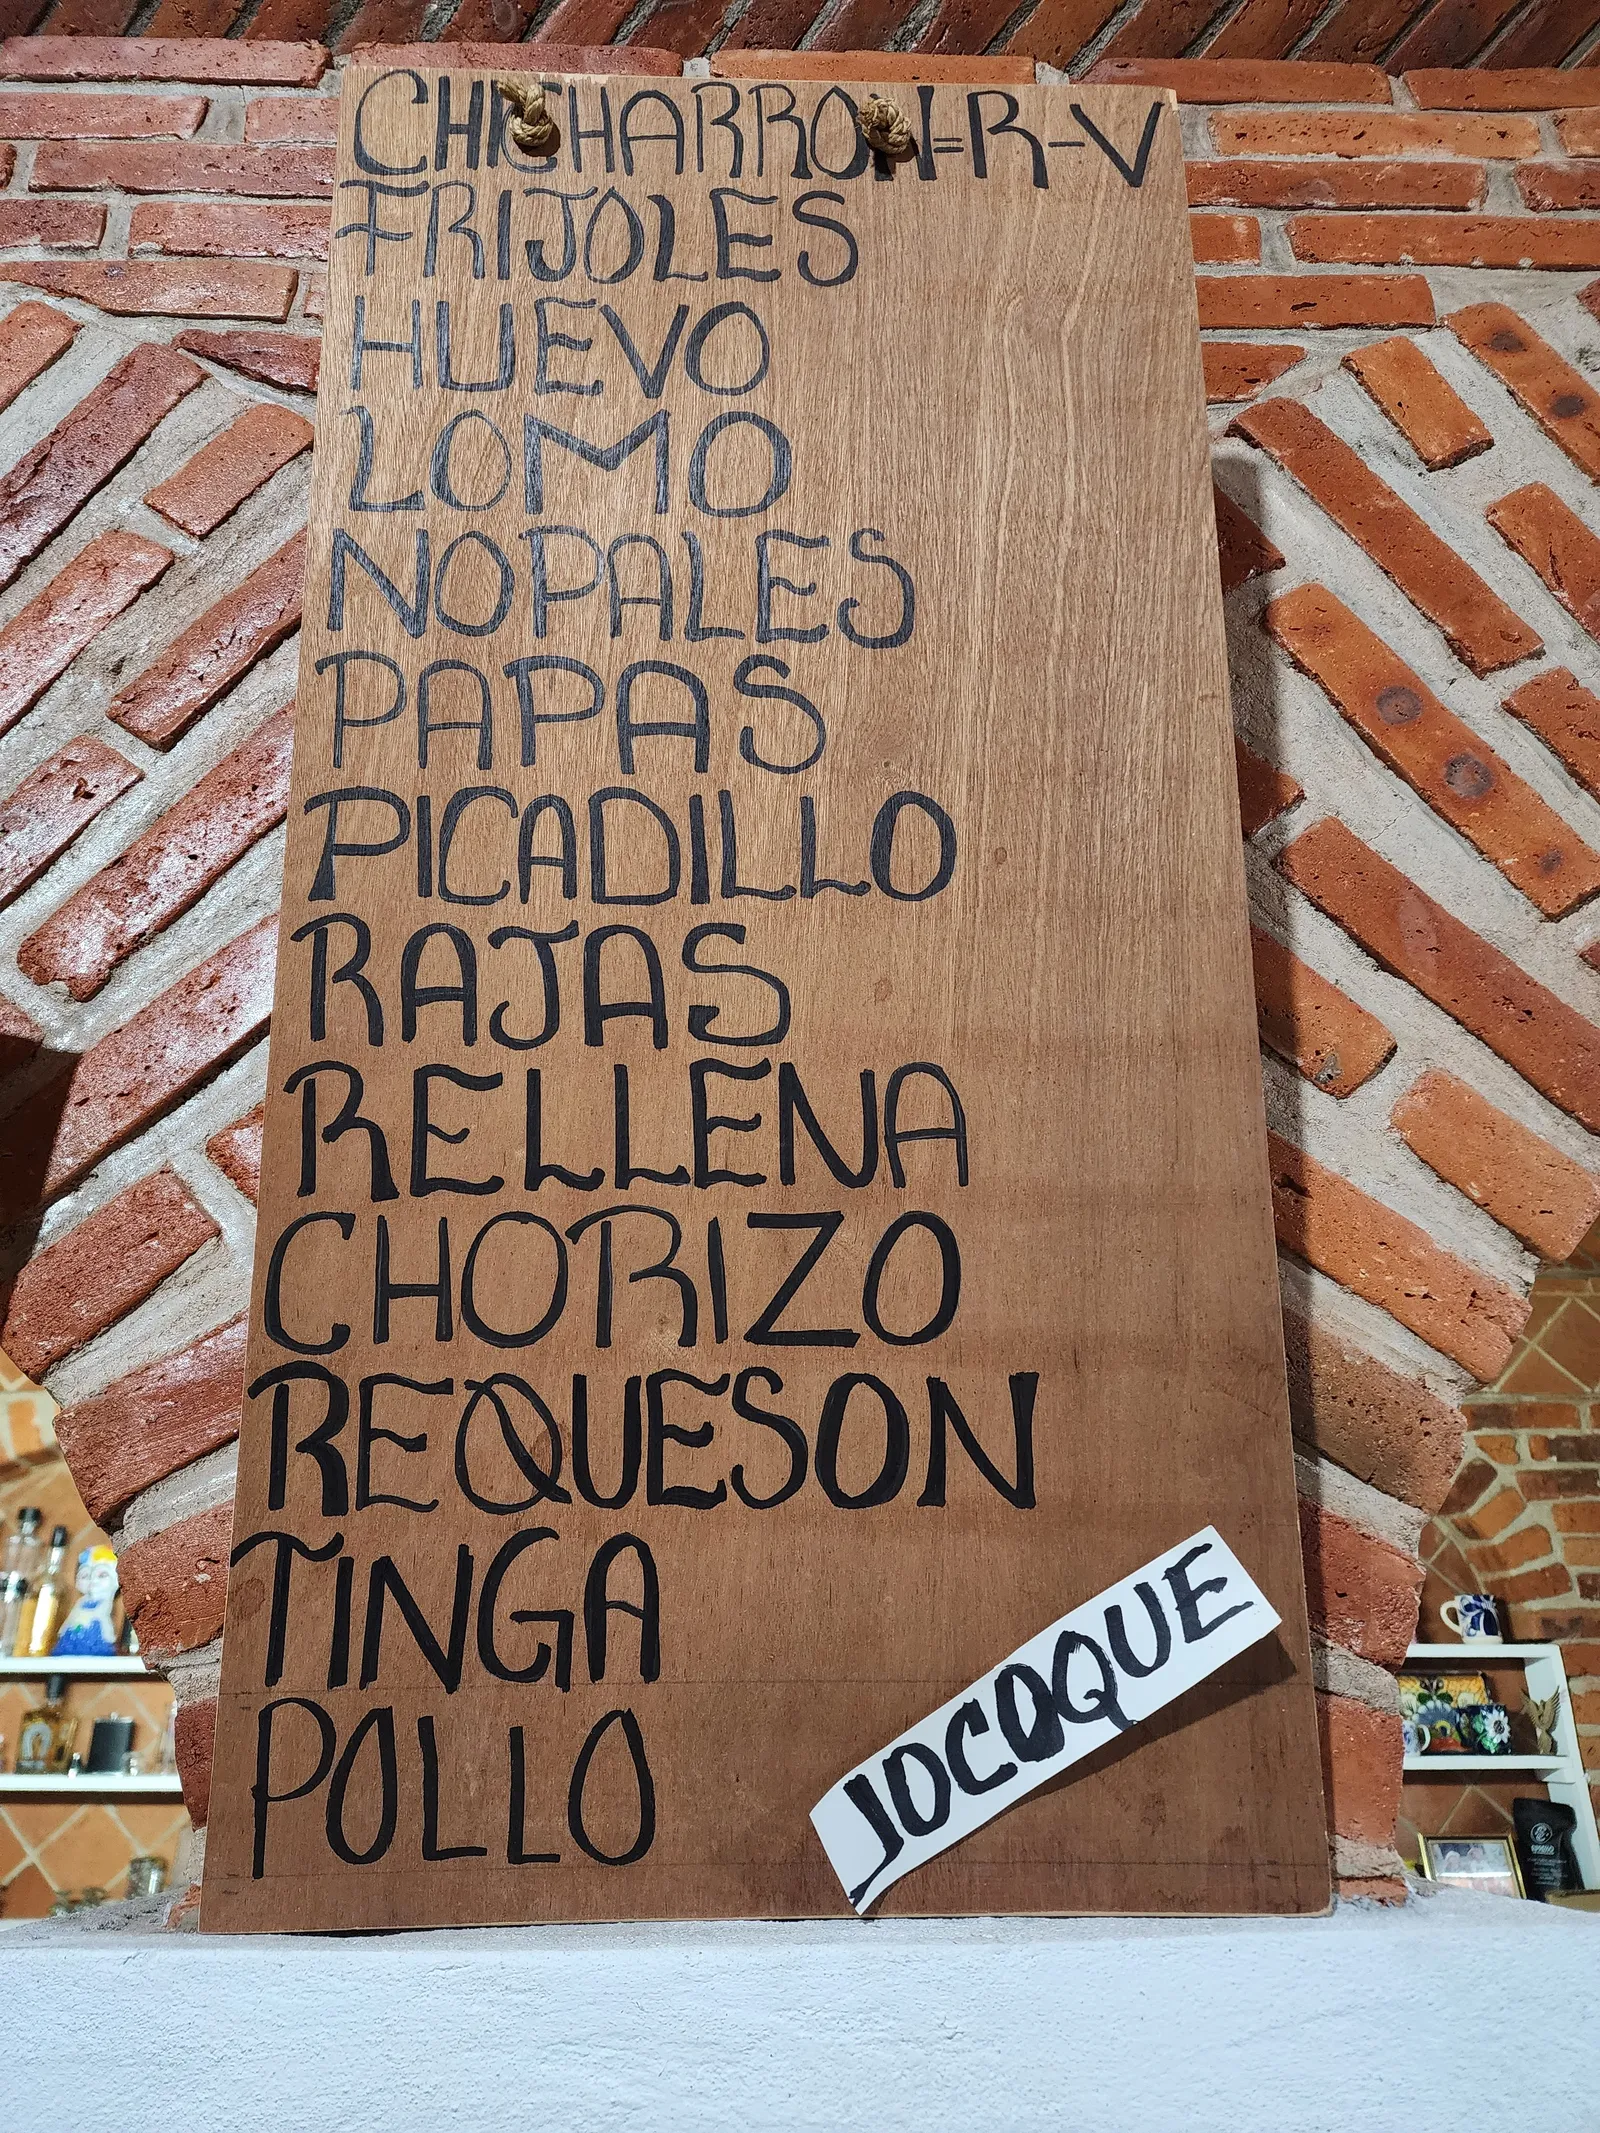 CHICHARRON=R-V
FRIJOLES
HUEVO
LOMO
NOPALES
PAPAS
PICADILLO
RAJAS
RELLENA
CHORIZO
REQUESON
TINGA
POLLO
JOCOQUE